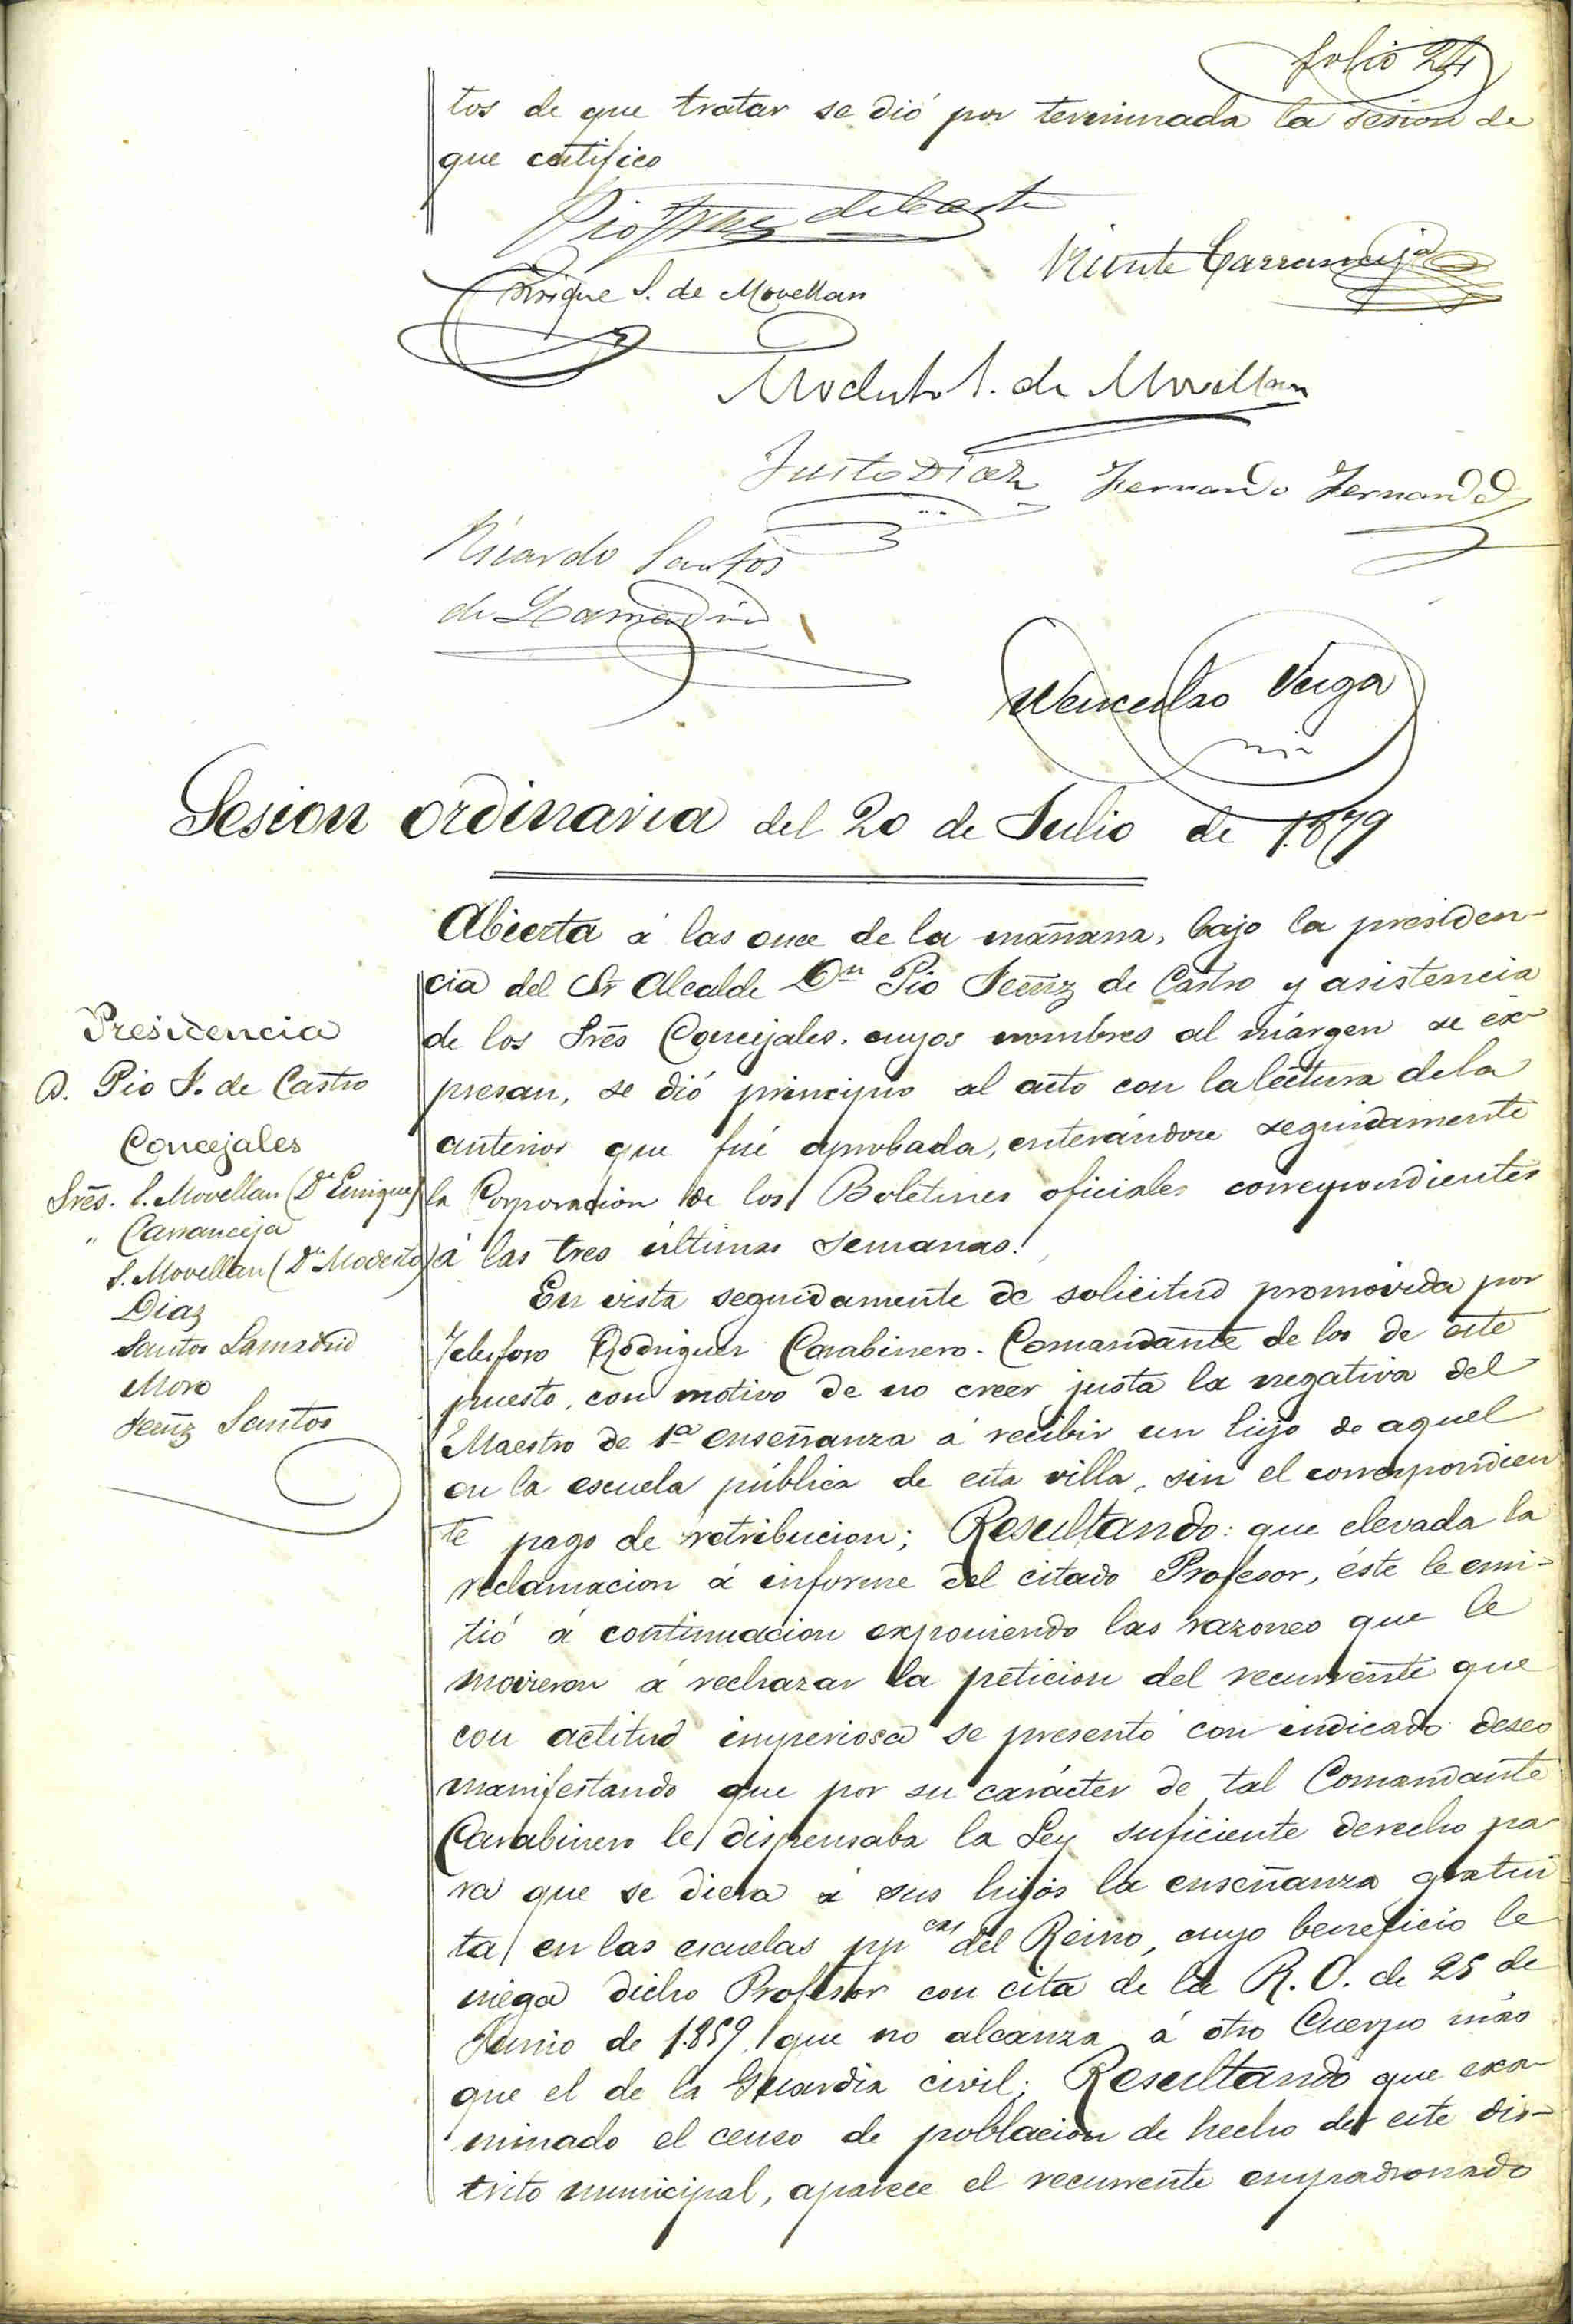 folio 24
tos de que tratar se dió por terminada la sesion de
que certifico
Pio de Castro
Vicente Carranceja
Enrique S. de Movellan
Modesto S. de Movellan
Justo Diaz Fernando Fernandez
Ricardo Santos
de Lamadrid
Wenceslao Veiga
Sesion ordinaria del 20 de Julio de 1.879
Abierta á las once de la mañana, bajo la presiden-
cia del Sr Alcalde Dn Pio Fernz de Castro y asistencia
de los Sres Concejales cuyos nombres al márgen se ex-
presan, se dió principio al acto con la lectura dela
anterior que fué aprobada, enterándose seguidamente
la Corporacion de los Boletines oficiales correspondientes
á las tres últimas semanas.
Presidencia
D. Pio F. de Castro
Concejales
Sres. S. Movellan (Dn Enrique)
" Carranceja
S. Movellan (Dn Modesto)
Diaz
Santos Lamadrid
Moro
Fernz Santos
En vista seguidamente de solicitud promovida por
Telesforo Rodriguez Carabinero-Comandante de los de este
puesto, con motivo de no creer justa la negativa del
Maestro de 1a enseñanza á recibir un hijo de aquel
en la escuela pública de esta villa, sin el correspondien
te pago de retribucion; Resultando: que elevada la
reclamacion á informe del citado Profesor, éste le emi-
tió á continuacion exponiendo las razones que le
movieron á rechazar la peticion del recurrente que
con actitud imperiosa se presentó con indicado deseo
manifestando que por su carácter de tal Comandante
Carabinero le dispensaba la Ley suficiente derecho pa
ra que se diera á sus hijos la enseñanza gratui
ta en las escuelas ppcas del Reino, cuyo beneficio le
niega dicho Profesor con cita de la R. O. de 25 de
Junio de 1.859 que no alcanza á otro Cuerpo más
que el de la Guardia civil; Resultando que exa-
minado el censo de poblacion de hecho de este dis-
trito municipal, aparece el recurrente empadronado